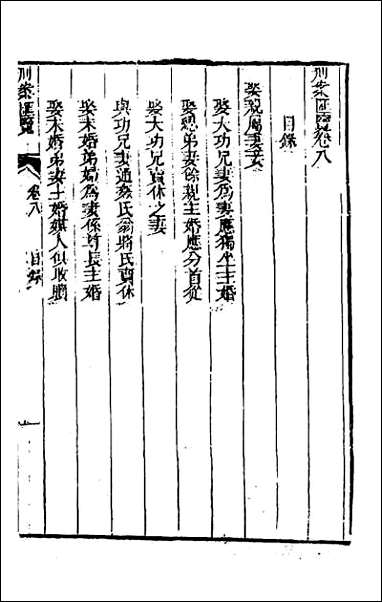 刑案匯覽卷八
目錄
娶親屬妻妾
娶大功兄妻為妻應獨坐主婚
娶緦弟妻係親主婚應分首從
娶大功兄賣休之妻
與功兄妻通姦氏翁將氏賣休
娶未婚弟婦為妻係尊長主婚
娶未婚弟妻主婚媒人俱收贖
刑案匯覽
卷八
目錄